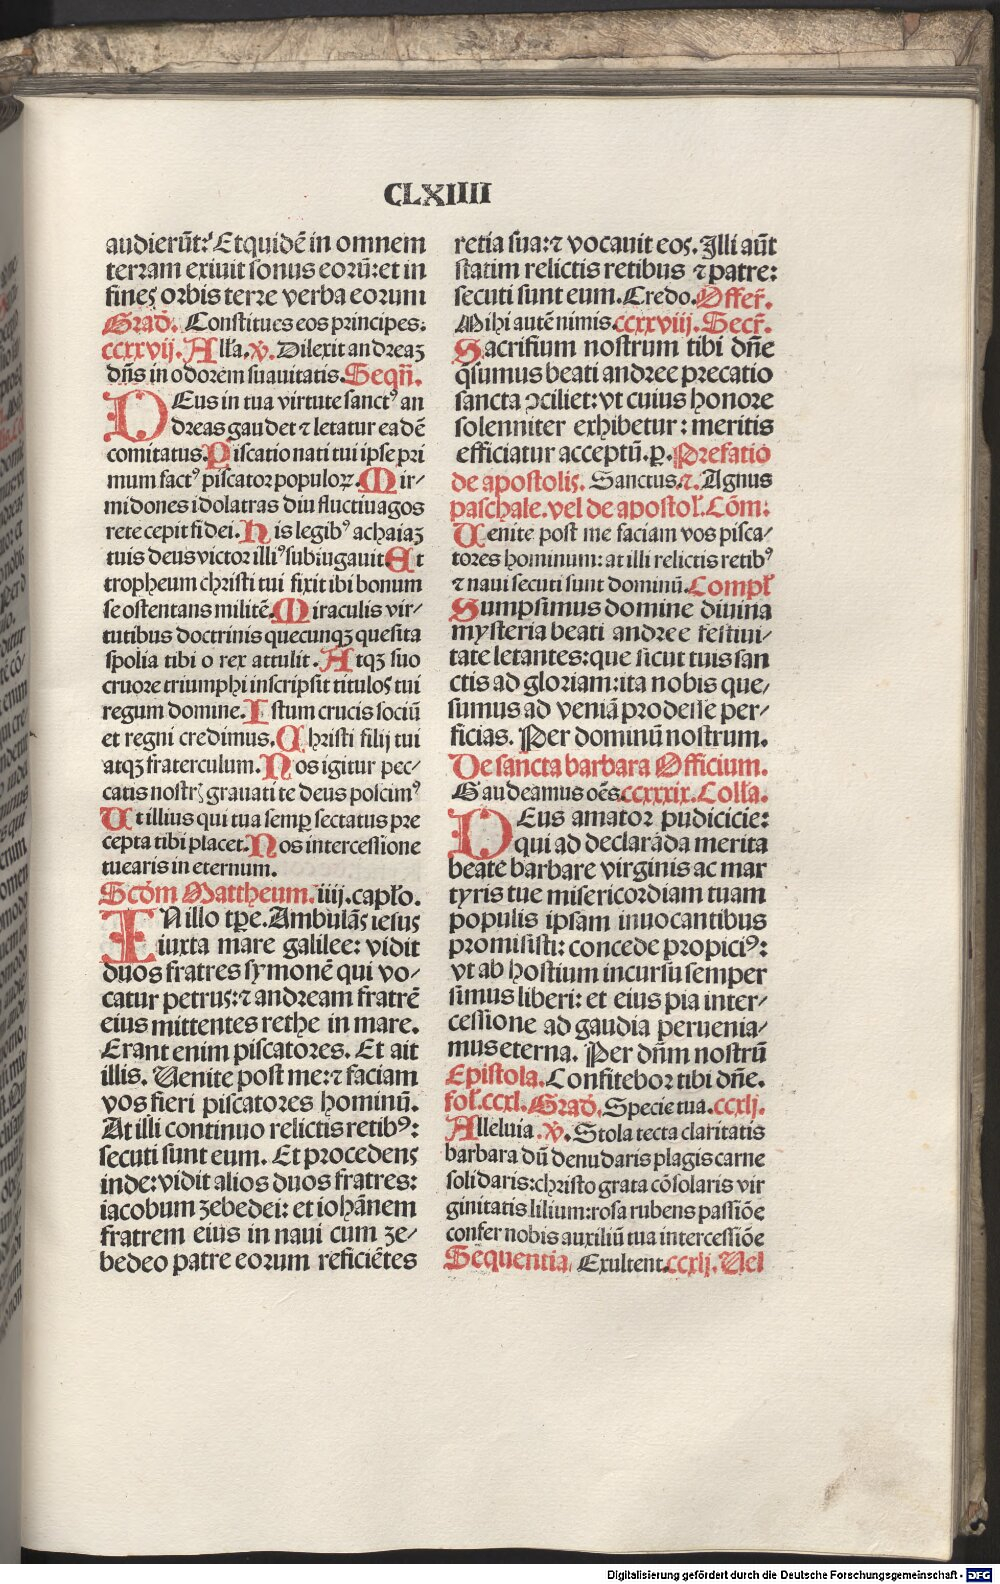 CLXIIII
audierūt? Et quidē in omnem
terram exiuit sonus eorū: et in
fines orbis terre verba eorum
Grad̄. Constitues eos principes.
ccxxvij. All̄a. ℣. Dilexit andreaȝ
dn̄s in odorem suauitatis. Seqn̄.
DEus in tua virtute sanctꝰ an
dreas gaudet ⁊ letatur eadē
comitatus. Piscationati tui ipse pri
mum factꝰ piscator populoꝝ. Mir⸗
midones idolatras diu fluctiuagos
rete cepit fidei. His legibꝰ achaiaȝ
tuis deus victor illiꝰ subiugauit. Et
tropheum christi tui fixit ibi bonum
se ostentans militē. Miraculis vir⸗
tutibus doctrinis quecunqȝ quesita
spolia tibi o rex attulit. Atqȝ suo
cruore triumphi inscripsit titulos tui
regum domine. Istum crucis sociū
et regni credimus. Christi filij tui
atqȝ fraterculum. Nos igitur pec⸗
catis nostrꝭ grauati te deus poscimꝰ
Ut illius qui tua semꝑ sectatus pre
cepta tibi placet. Nos intercessione
tuearis in eternum.
Scd̄m Mattheum. iiij. capl̄o.
IN illo tꝑe. Ambulās iesus
iuxta mare galilee: vidit
duos fratres symonē qui vo⸗
catur petrus: ⁊ andream fratrē
eius mittentes rethe in mare.
Erant enim piscatores. Et ait
illis. Venite post me: ⁊ faciam
vos fieri piscatores hominū.
At illi continuo relictis retibꝰ:
secuti sunt eum. Et procedens
inde: vidit alios duos fratres:
iacobum zebedei: et iohānem
fratrem eius in naui cum ze⸗
bedeo patre eorum reficiētes
retia sua: ⁊ vocauit eos. Illi aūt
statim relictis retibus ⁊ patre:
secuti sunt eum. Credo. Offer̄.
Mihi autē nimis. ccxxviij. Secr̄.
Sacrifium nostrum tibi dn̄e
q̄sumus beati andree precatio
sancta ꝯciliet: vt cuius honore
solenniter exhibetur: meritis
efficiatur acceptū. ꝑ. Prefatio
de apostolis. Sanctus. ⁊. Agnus
paschale. vel de apostol̄. Cōm:
Venite post me faciam vos pisca⸗
tores hominum: at illi relictis retibꝰ
⁊ naui secuti sunt dominū. Compl̄
Sumpsimus domine diuina
mysteria beati andree festiui⸗
tate letantes: que sicut tuis san
ctis ad gloriam: ita nobis que⸗
sumus ad veniā prodesse per⸗
ficias. Per dominū nostrum.
De sancta barbara Officium.
Gaudeamus oēs. ccxxxix. Coll̄a.
DEus amator pudicicie:
qui ad declarāda merita
beate barbare virginis ac mar
tyris tue misericordiam tuam
populis ipsam inuocantibus
promisisti: concede propiciꝰ:
vt ab hostium incursu semper
simus liberi: et eius pia inter⸗
cessione ad gaudia peruenia⸗
mus eterna. Per dn̄m nostrū
Epistola. Confitebor tibi dn̄e.
fol̄. ccxl. Grad̄. Specie tua. ccxlj.
Alleluia. ℣. Stola tecta claritatis
barbara dū denudaris plagis carne
solidaris: christo grata cōsolaris vir
ginitatis lilium: rosa rubens passiōe
confer nobis auxiliū tua intercessiōe
Sequentia. Exultent. ccxlj. Vel
Digitalisierung gefördert durch die Deutsche Forschungsgemeinschaft - DFG